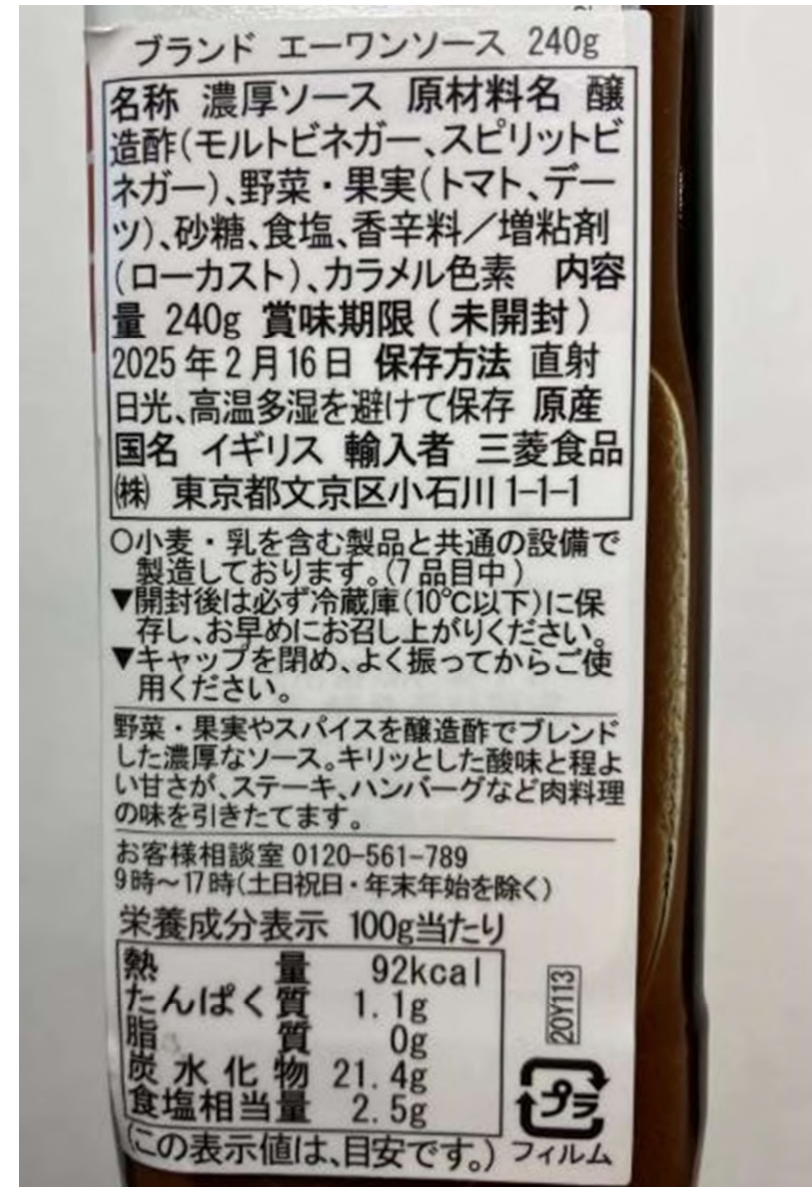 ブランド エーワンソース 240g
名称 濃厚ソース 原材料名 醸
造酢(モルトビネガー、スピリットビ
ネガー)、野菜・果実(トマト、デー
ツ)、砂糖、食塩、香辛料／増粘剤
(ローカスト)、カラメル色素 内容
量 240g 賞味期限(未開封)
2025年2月16日 保存方法 直射
日光、高温多湿を避けて保存 原産
国名 イギリス 輸入者 三菱食品
㈱ 東京都文京区小石川1-1-1
○小麦・乳を含む製品と共通の設備で
製造しております。(7品目中)
▼開封後は必ず冷蔵庫(10℃以下)に保
存し、お早めにお召し上がりください。
▼キャップを閉め、よく振ってからご使
用ください。
野菜・果実やスパイスを醸造酢でブレンド
した濃厚なソース。キリッとした酸味と程よ
い甘さが、ステーキ、ハンバーグなど肉料理
の味を引きたてます。
お客様相談室 0120-561-789
9時～17時(土日祝日・年末年始を除く)
栄養成分表示 100g当たり
熱量 92kcal
たんぱく質 1.1g
脂質 0g
炭水化物 21.4g
食塩相当量 2.5g
(この表示値は、目安です。)
20Y113
プラ
フィルム